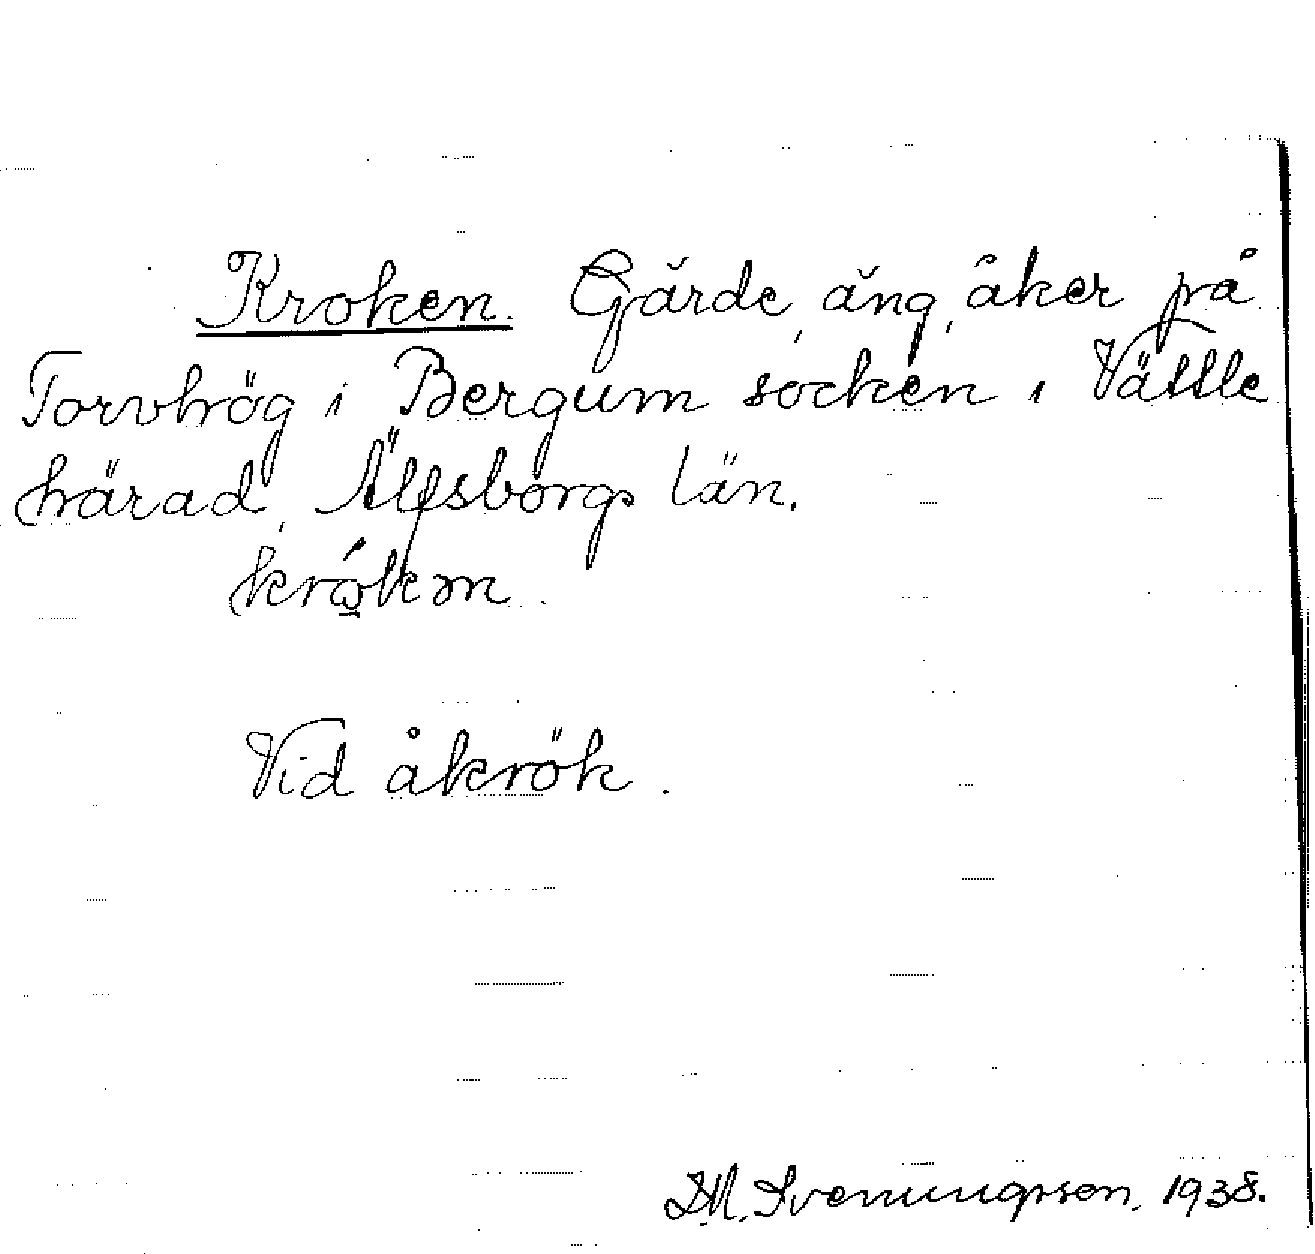 Kroken. Gärde, äng, åker på
Torvhög i Bergum socken i Vättle
härad, Älfsborgs län.
Vid åkrök.
D.M. Svenungsson. 1938.